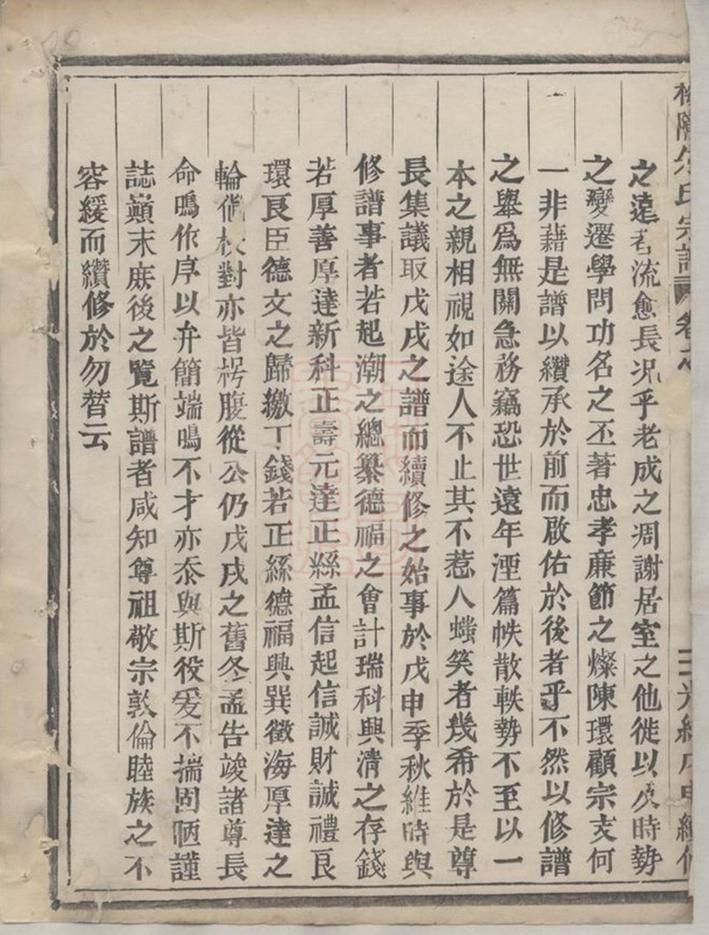 氏宗譜 卷之 三 光緒戊申續修
之遠者流愈長况乎老成之凋謝居室之他徙以及時勢
之變遷學問功名之丕著忠孝廉節之燦陳環顧宗支何
一非藉是譜以纘承於前而啟佑於後者乎不然以修譜
之舉爲無關急務竊恐世遠年湮篇帙散軼勢不至以一
本之親相視如途人不止其不惹人蚩笑者幾希於是尊
長集議取戊戌之譜而續修之始事於戊申季秋維時與
修譜事者若起潮之總纂德福之會計瑞科興清之存錢
若厚善厚達新科正壽元達正縣孟信起信誠財誠禮良
環良臣德文之歸繳丁錢若正絲德福興巽徵海厚達之
輪俻校對亦皆枵腹從公仍戊戌之舊冬孟告竣諸尊長
命鳴作序以弁簡端鳴不才亦忝與斯役爰不揣固陋謹
誌巔末庶後之覽斯譜者咸知尊祖敬宗敦倫睦族之不
容緩而纘修於勿替云